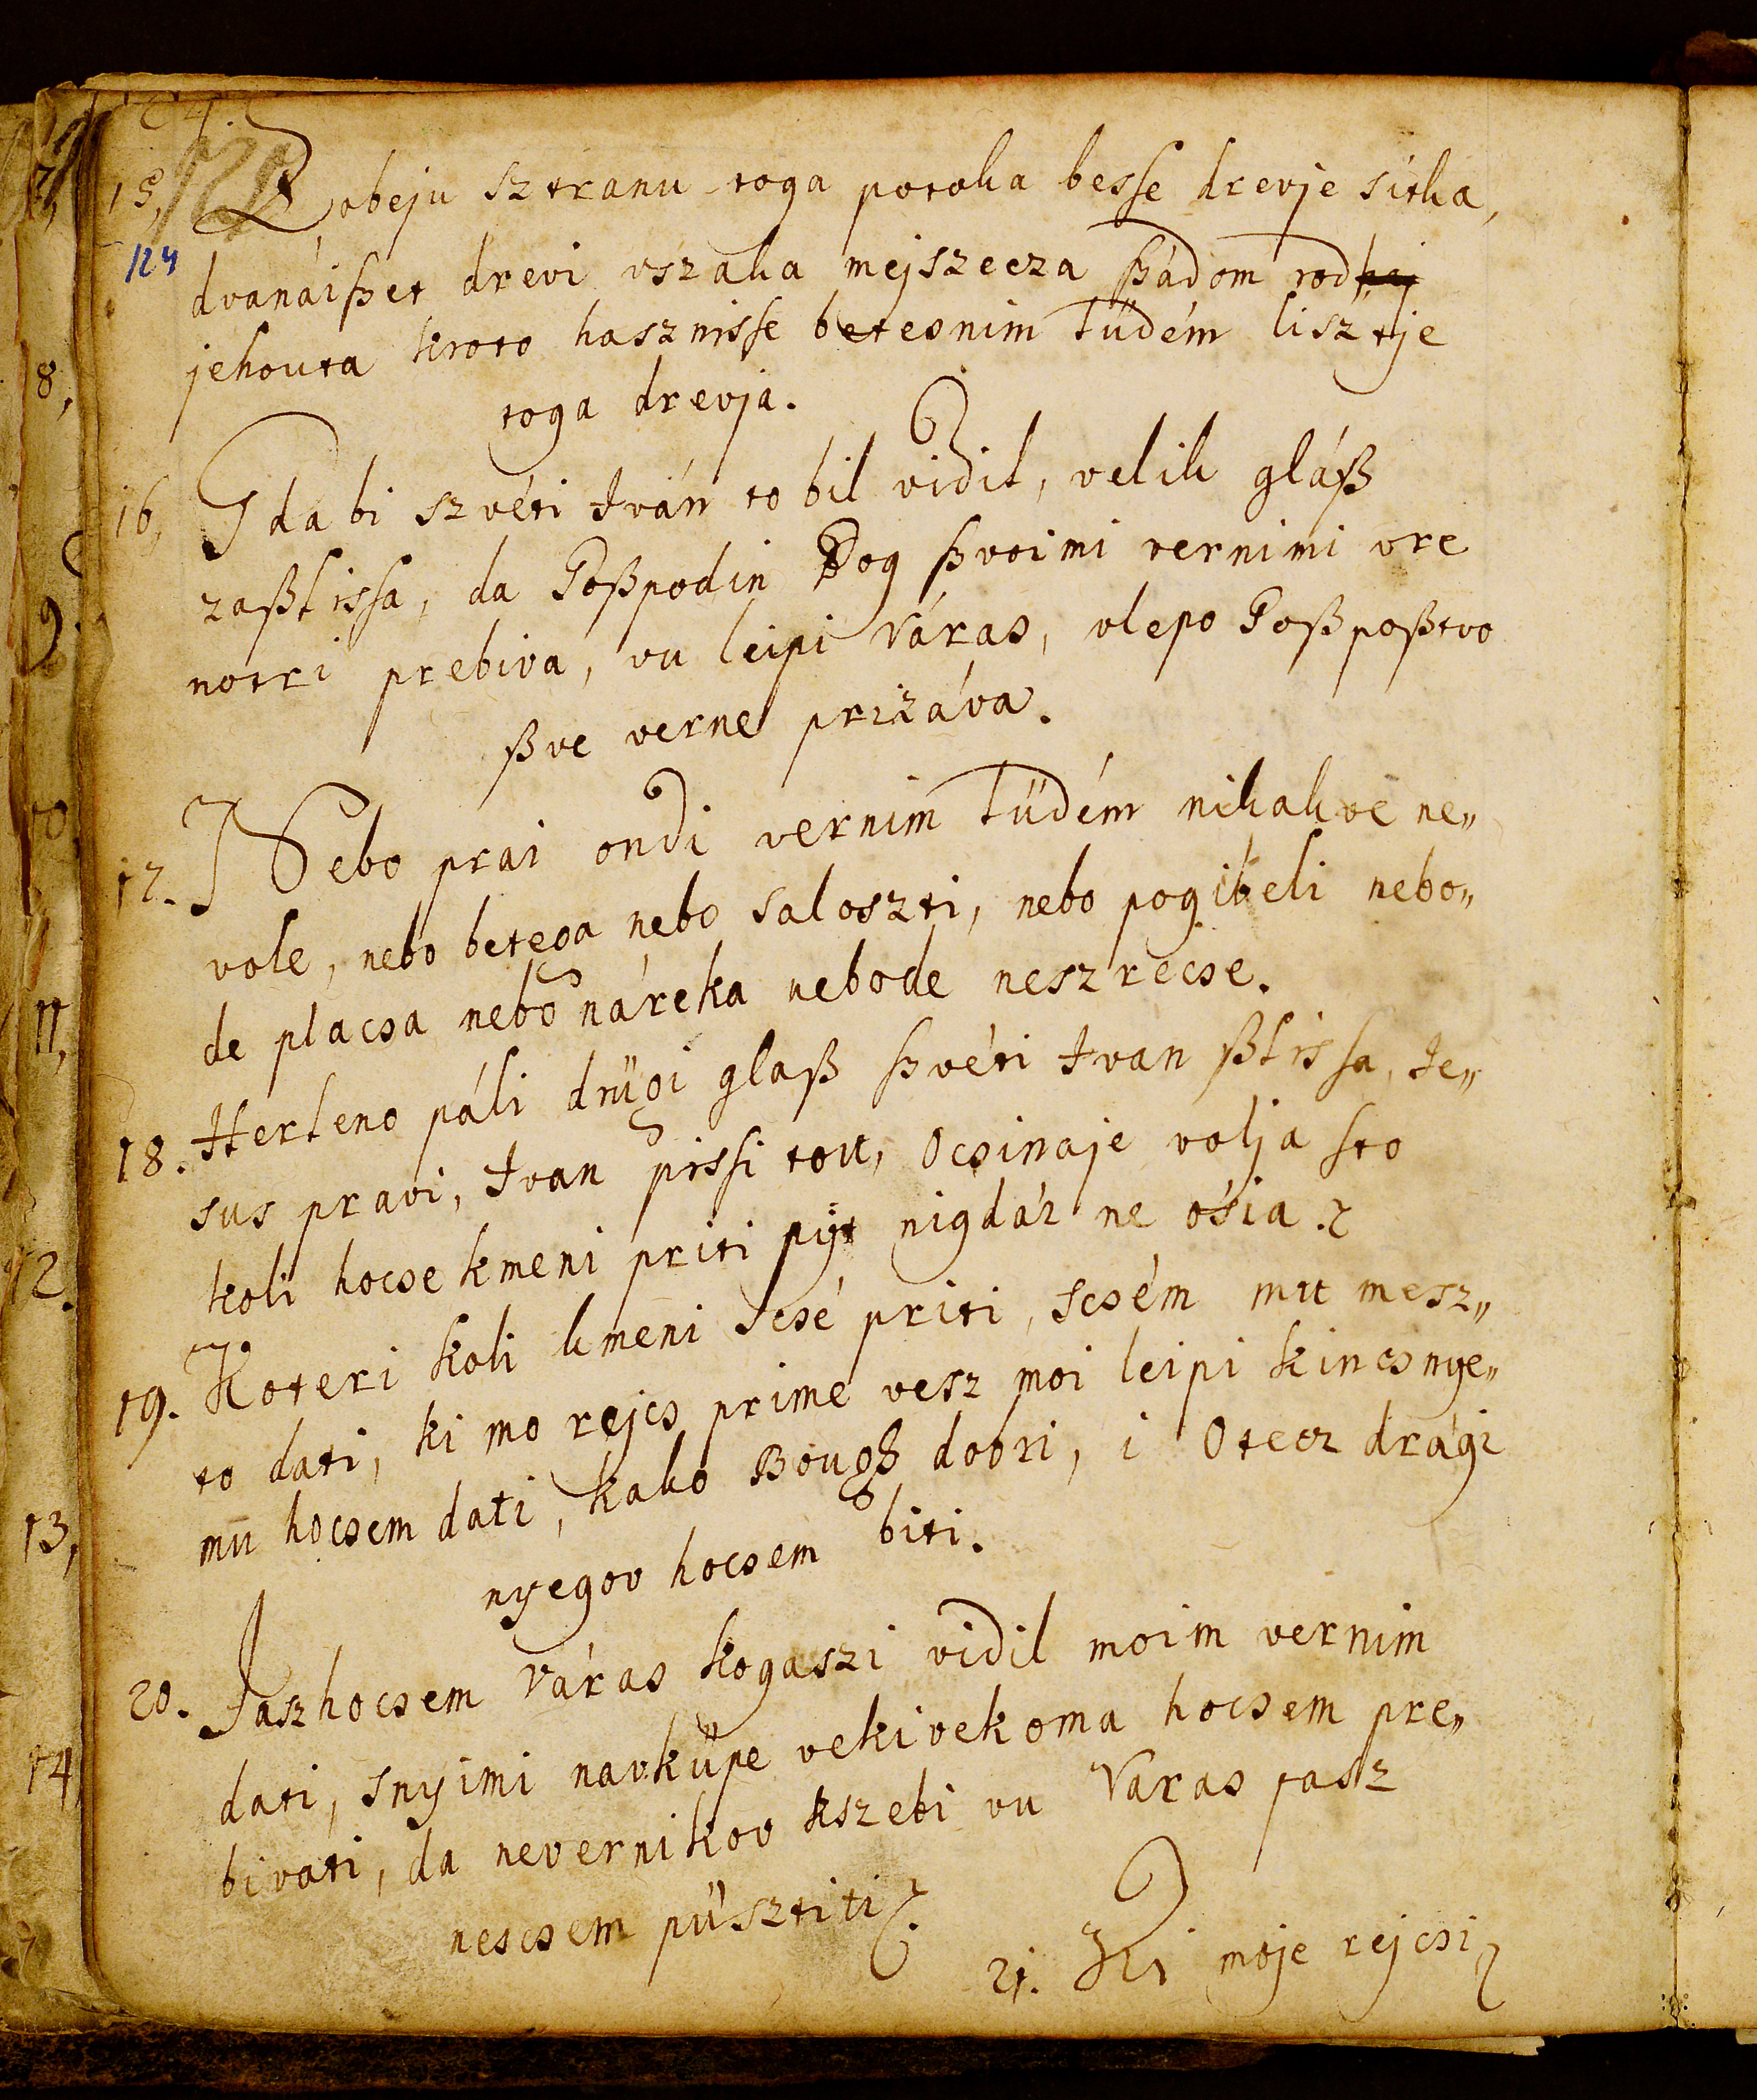 15, Z obeju sztranu toga potoka besse drevje sitka,
124
dvanáißet drevi vszaka mejszecza ßádom rod
jehouta kroto hasznisse betesnim lüdém lisztje
toga drevja.
16, I da bi szvéti Iván to bil vidil, velik gláß
zaßlissa, da Goßpodin Bog ßvoimi vernimi vre
notri prebiva, vu leipiVáras, vlepo Goßpoßtvo
ßve verne prizáva.
17. I Nebo prai ondi vernim lüdém nikakve ne„
vole, nebo betega nebo saloszti, nebo pogibeli nebo„
de placsa nebo náreka nebode neszrecse.
18. Herleno páli drügi glaß ßvéti Ivan ßlissa, Je„
sus pravi, Ivan pissi tou, Ocsinaje volja sto
koli hocse kmeni priti pijt nigdár ne ósia.
19. Koteri koli kmeni scsé priti, scsém mu mesz„
to dati, ki mo rejcs prime vesz moi leipi kincs nye„
mu hocsem dati, kako Bough dobri, i Otecz drági
nyegov hocsem biti.
20. Jasz hocsem Váras kogaszi vidil moim vernim
dati, snyimi navküpe vekivekoma hocsem pre„
bivati, da nevernikov kszebi vu Varas tasz
nescsem püsztiti.
21. Ki moje rejcsi
8,
9.
11,
12.
13,
14